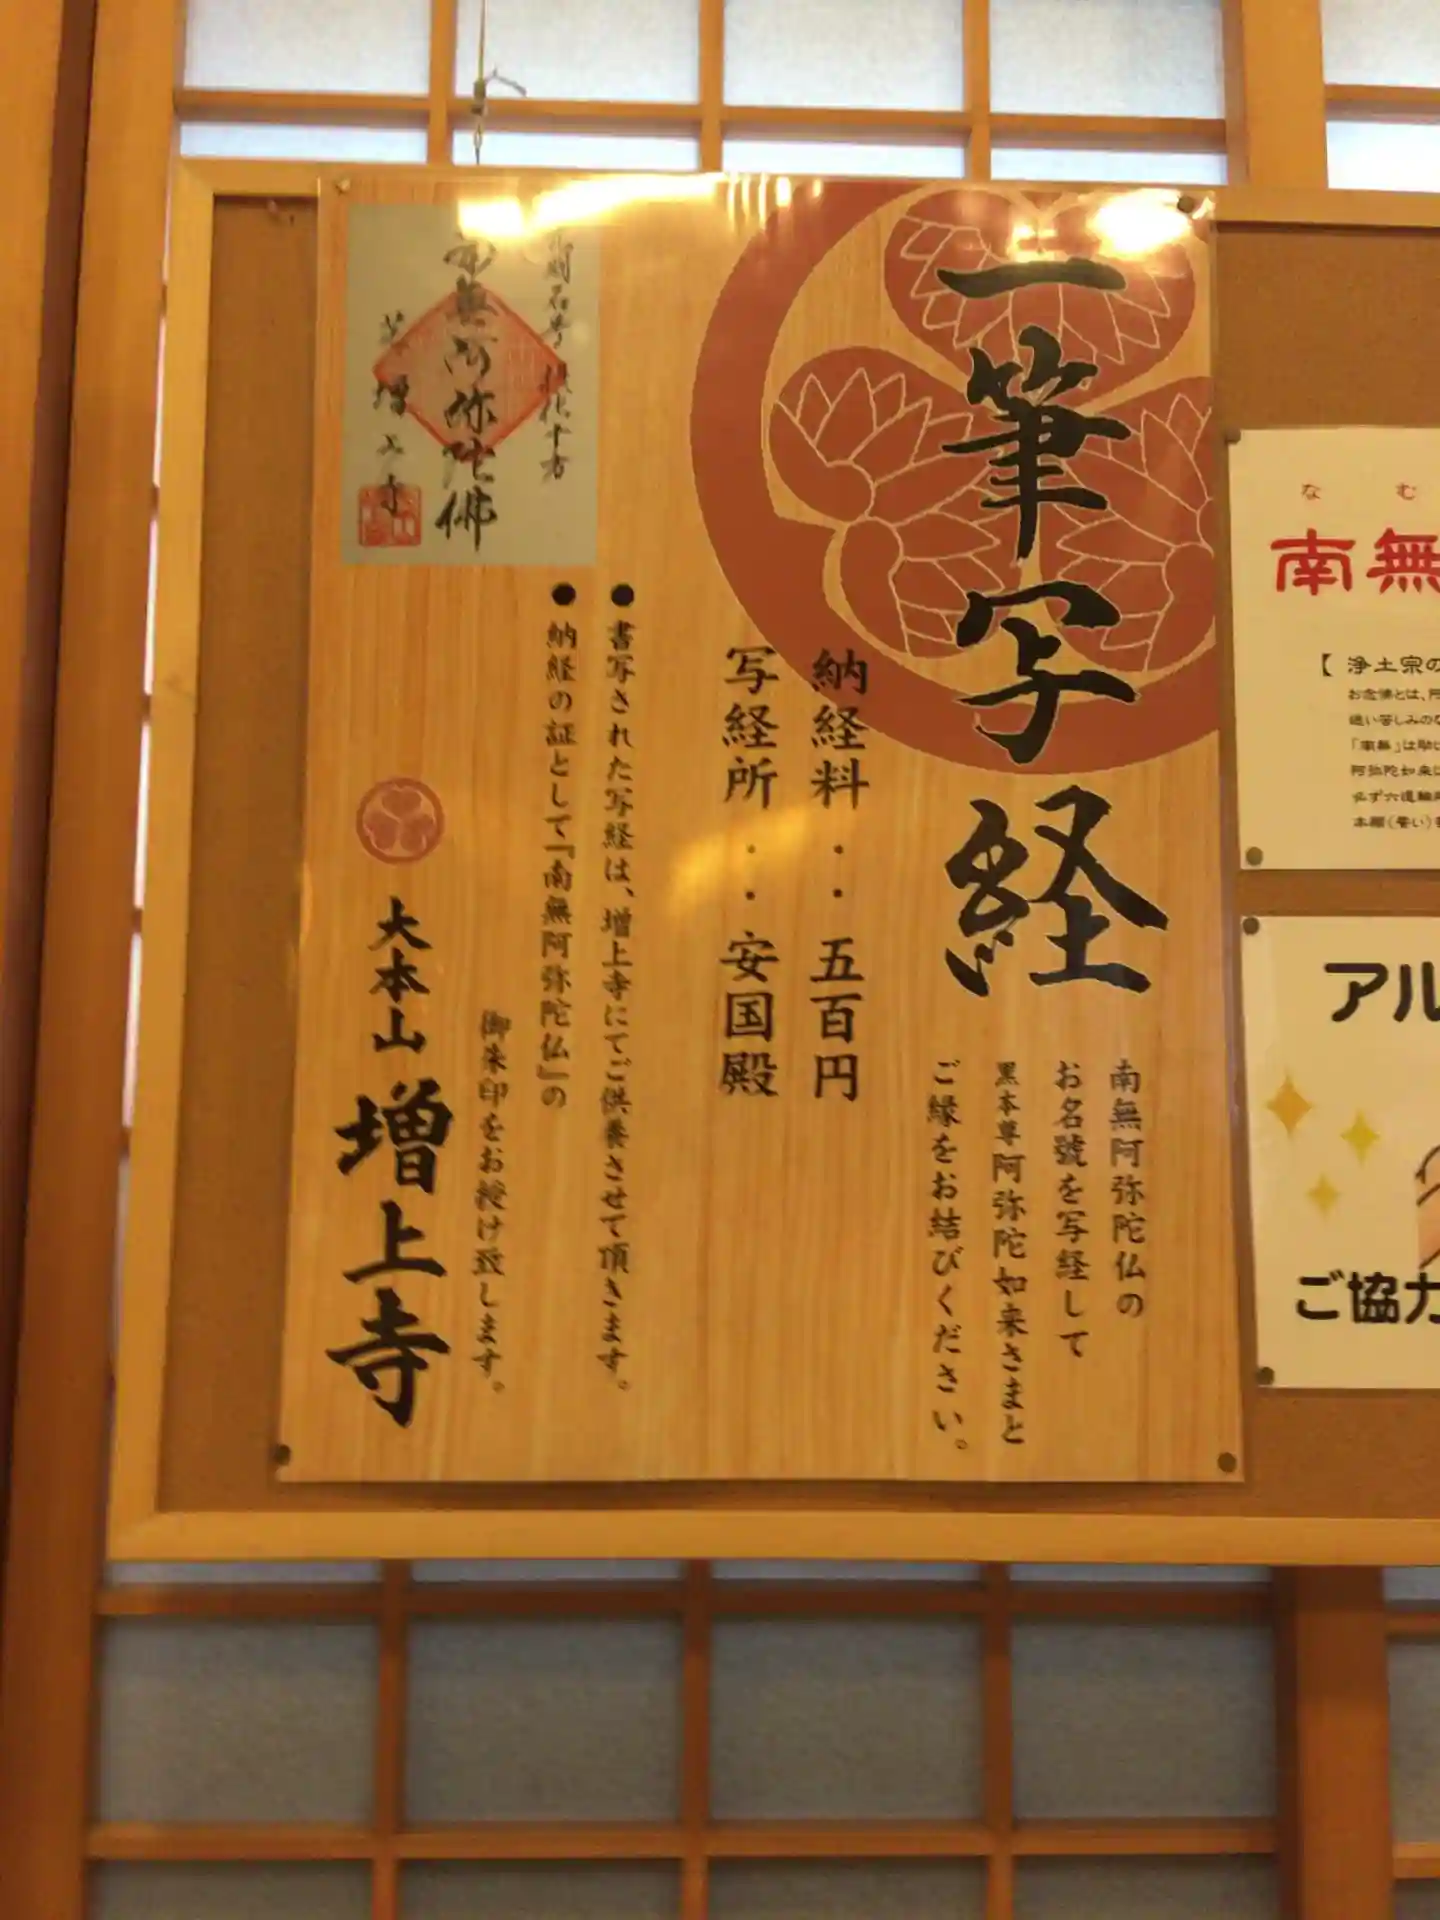 一筆写経
南無阿弥陀仏の
お名號を写経して
黒本尊阿弥陀如来さまと
ご縁をお結びください。
納経料：五百円
写経所：安国殿
●書写された写経は、増上寺にてご供養させて頂きます。
●納経の証として『南無阿弥陀仏』の
御朱印をお授け致します。
大本山 増上寺
無阿弥陀佛
増上寺
なむ
南無
【浄土宗の
お念佛とは、阿
「南無」は
阿弥陀如来
必ず六道輪
本願(誓い)
アル
ご協力